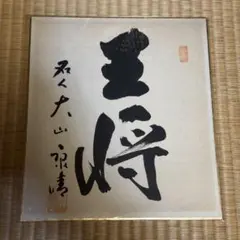 王将
名人大山康晴